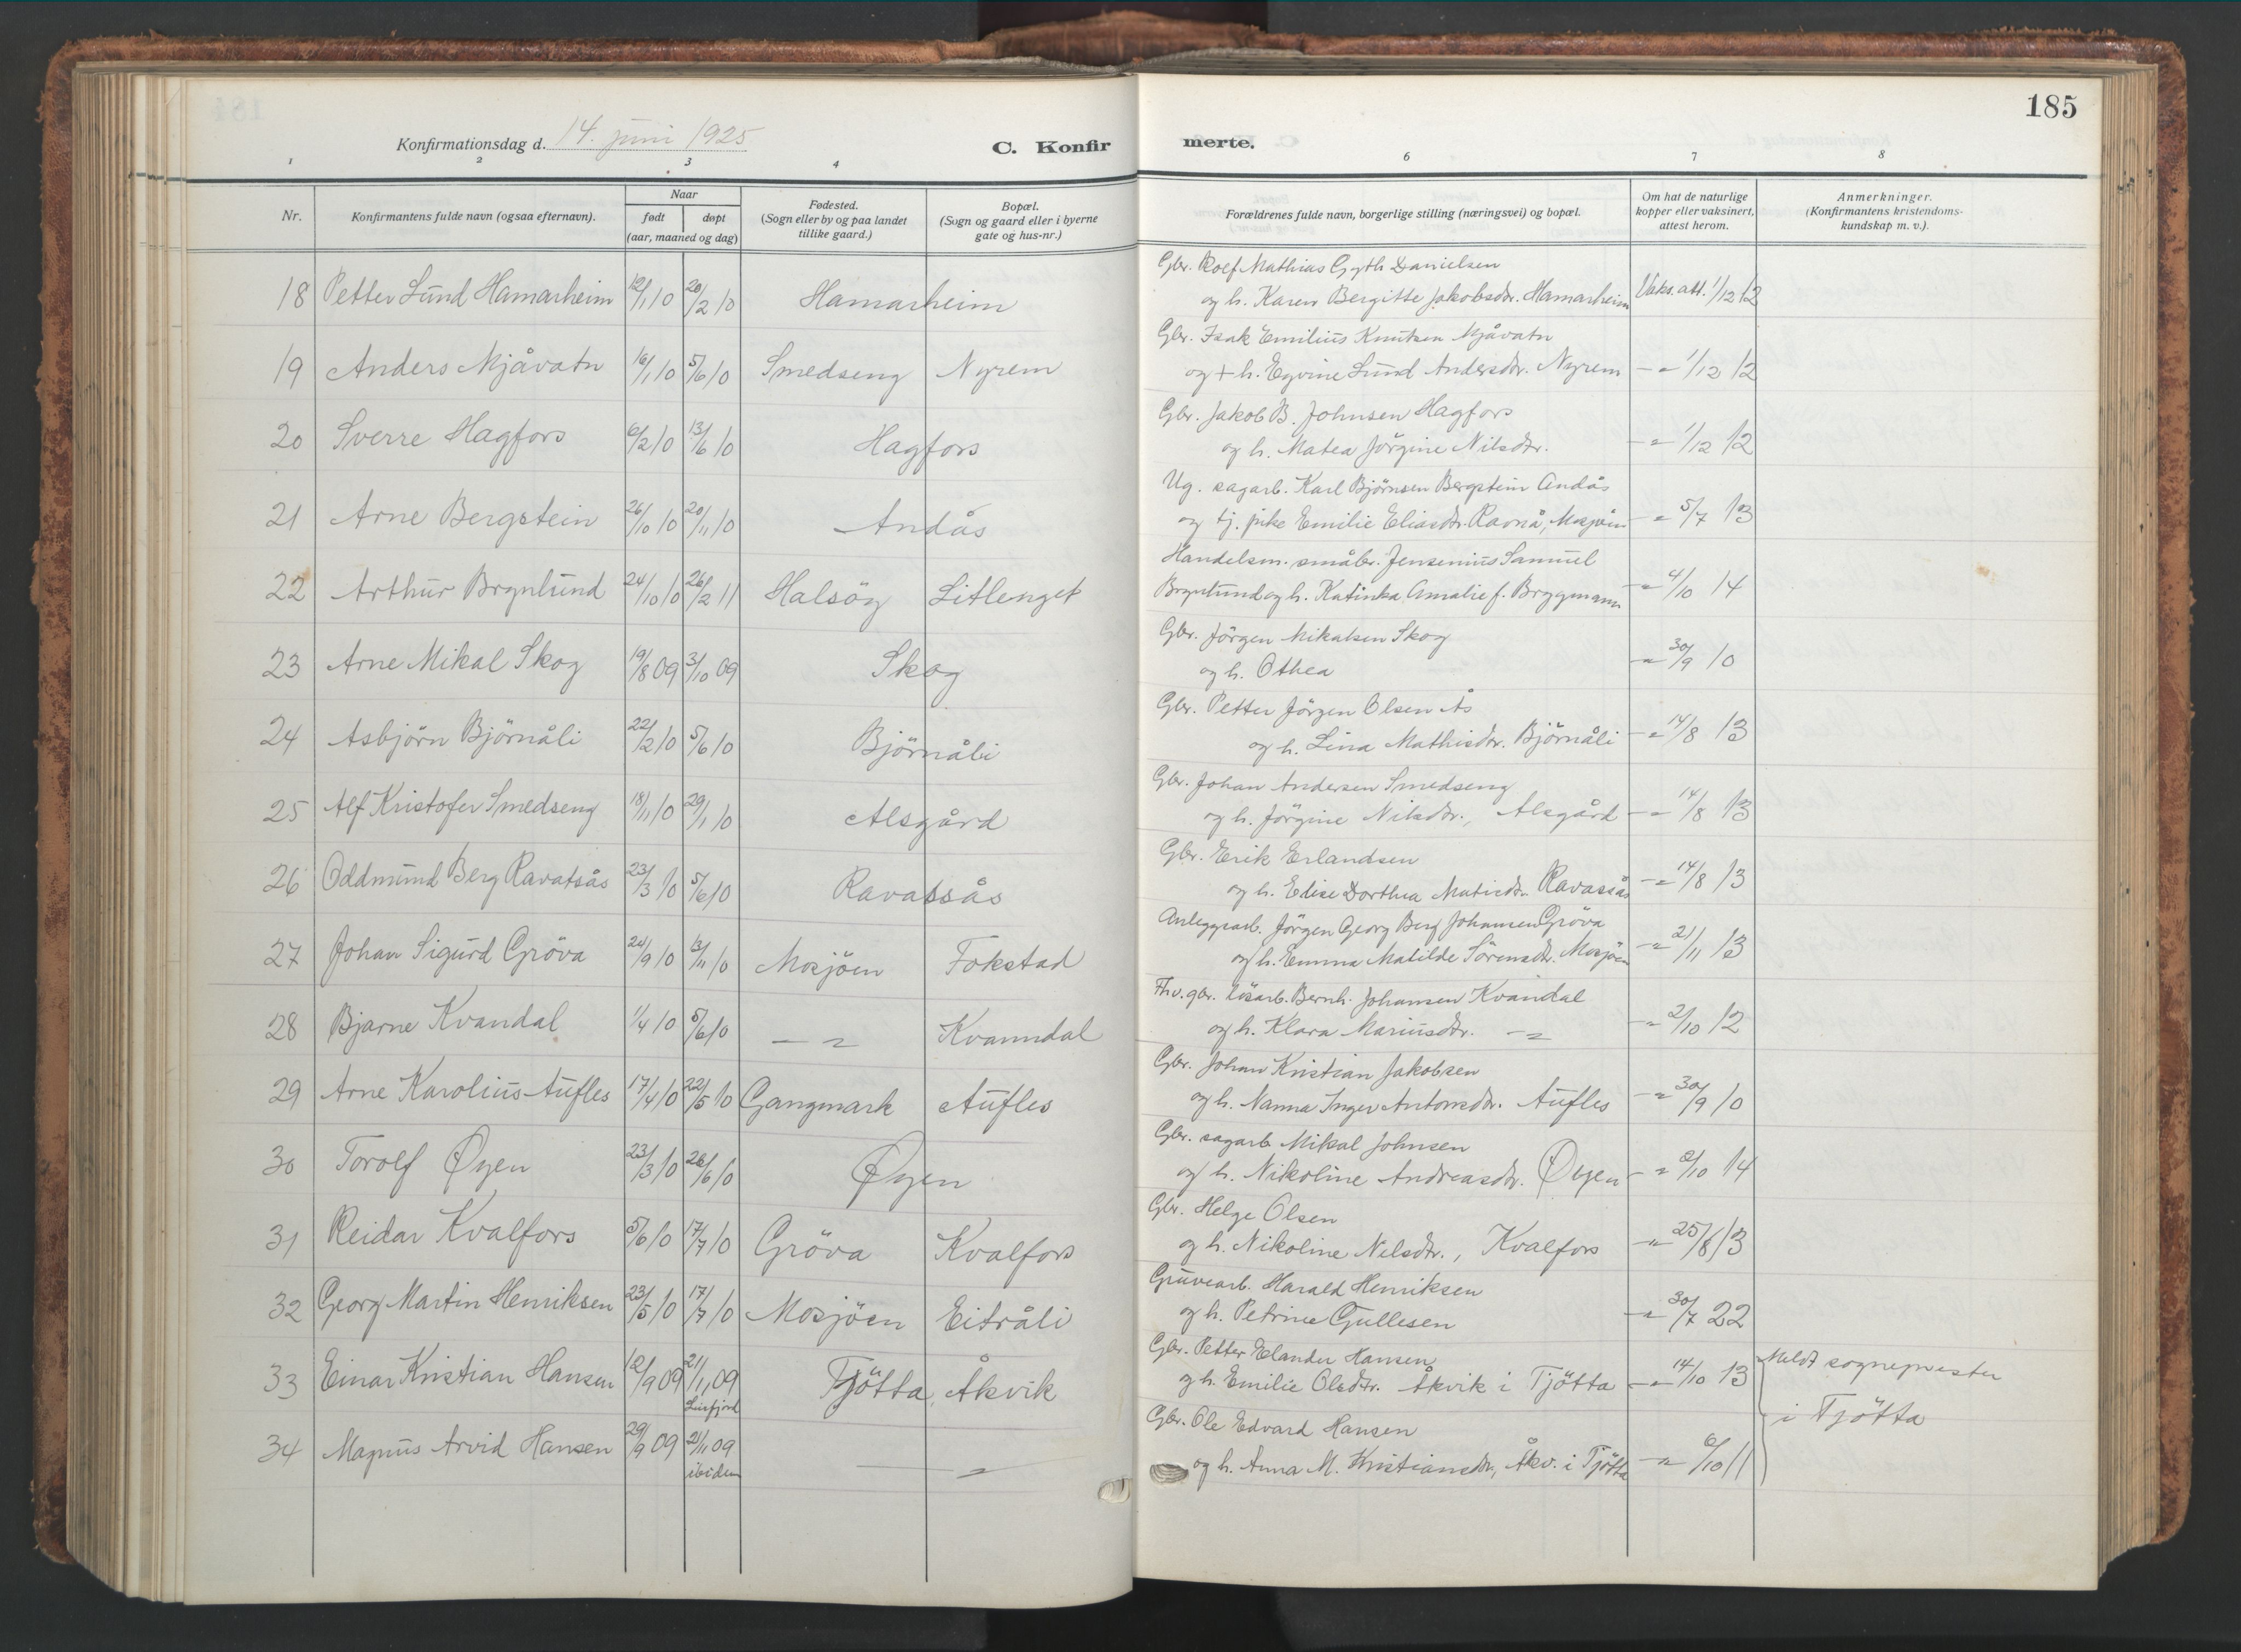 185
Konfirmationsdag d. 14. juni 1925
C. Konfirmerte.
1 2 3 4 6 7 8
Nr. Konfirmantens fulde navn (ogsaa efternavn). Naar født døpt (aar, maaned og dag) Fødested. (Sogn eller by og paa landet tillike gaard.) Bopæl. (Sogn og gaard eller i byerne gate og hus-nr.) Forældrenes fulde navn, borgerlige stilling (næringsvei) og bopæl. Om hat de naturlige kopper eller vaksinert, attest herom. Anmerkninger. (Konfirmantens kristendoms-kundskap m. v.).
18 Petter Lund Hamarheim 12/1 10 20/2 10 Hamarheim Gbr. Rolf Mathias Gyth Danielsen
og h. Karen Bergitte Jakobsdtr. Hamarheim Vaks. att. 1/12 12
19 Anders Mjåvatn 16/1 10 5/6 10 Smedseng Nyrem Gbr. Isak Emilius Knutsen Mjåvatn
og + h. Eyvine Lund Andersdtr. Nyrem -"- 1/12 12
20 Sverre Hagfors 6/2 10 13/6 10 Hagfors Gbr. Jakob B. Johnsen Hagfors
og h. Matea Jörgine Nilsdtr. -"- 1/12 12
21 Arne Bergstein 26/10 10 20/11 10 Andås Ug. sagarb. Karl Björnsen Bergstein Andås
og tj. pike Emilie Eliasdtr. Ravnå, Mosjöen -"- 5/7 13
22 Arthur Brynlund 24/10 10 26/2 11 Halsöy Litlenget Handelsm. småbr. Jensenius Samuel
Brynlund og h. Katinka Amalie f. Bryggmann -"- 4/10 14
23 Arne Mikal Skog 19/8 09 3/10 09 Skog Gbr. Jörgen Mikalsen Skog
og h. Othea -"- 30/9 10
24 Asbjörn Björnåli 22/2 10 5/6 10 Björnåli Gbr. Petter Jörgen Olsen Ås
og h. Lina Mathisdtr. Björnåli -"- 14/8 13
25 Alf Kristofer Smedseng 18/11 10 29/1 10 Alsgård Gbr. Johan Andersen Smedseng
og h. Jörgine Nilsdtr., Alsgård -"- 14/8 13
26 Oddmund Berg Ravatsås 23/3 10 5/6 10 Ravassås Gbr. Erik Erlandsen
og h. Edise Dorthea Mathisdtr. Ravassås -"- 14/8 13
27 Johan Sigurd Gröva 24/9 10 13/11 10 Mosjöen Fokstad Anleggsarb. Jörgen Georg Berg Johansen Gröva
og h. Emma Matilde Sörensdtr. Mosjöen -"- 21/11 13
28 Bjarne Kvandal 1/4 10 5/6 10 -"- Kvanndal Fhv. gbr. lösarb. Bernh. Johansen Kvandal
og h. Klara Mariusdtr. -"- -"- 2/10 12
29 Arne Karolius Aufles 17/4 10 22/5 10 Gangmark Aufles Gbr. Johan Kristian Jakobsen
og h. Nanna Inger Antonsdtr. Aufles -"- 30/9 10
30 Torolf Øyen 23/3 10 26/6 10 Øyen Gbr. sagarb. Mikal Johnsen
og h. Nikoline Andreasdtr. Øyen -"- 2/10 14
31 Reidar Kvalfors 5/6 10 17/7 10 Gröva Kvalfors Gbr. Helge Olsen
og h. Nikoline Nilsdtr., Kvalfors -"- 25/8 13
32 Georg Martin Henriksen 23/5 10 17/7 10 Mosjöen Eitråli Gruvearb. Harald Henriksen
og h. Petrine Gullesen -"- 30/7 22
33 Einar Kristian Hansen 12/9 09 21/11 09 Tjötta, Åkvik Gbr. Petter Elander Hansen
og h. Emilie Olsdtr. Åkvik i Tjötta -"- 14/10 13 Meldt sogneprester
i Tjötta
34 Magnus Arvid Hansen 29/9 09 21/11 09 ibidem -"- Gbr. Ole Edvard Hansen
og h. Anna M. Kristiansdtr., Åkv. i Tjötta -"- 6/10 11